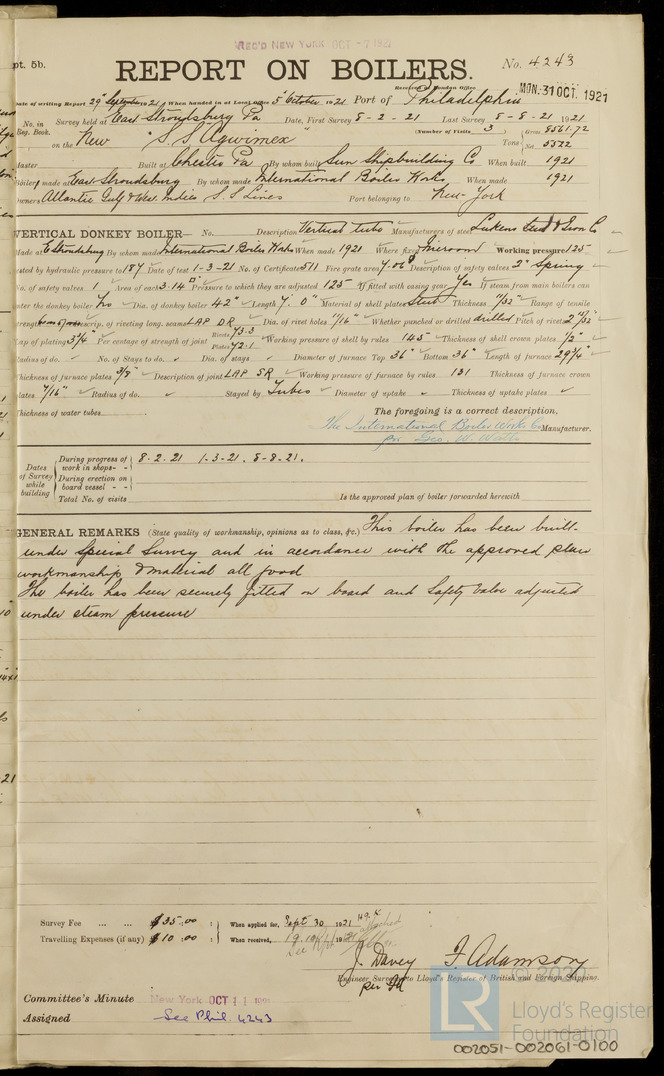 REC'D NEW YORK OCT -7 1921
pt. 5b.
REPORT ON BOILERS.
No. 4243
Received at London Office MON. 31 OCT. 1921
Date of writing Report 29th September 1921 When handed in at Local Office 5 October 1921 Port of Philadelphia
No. in Reg. Book. Survey held at East Stroudsburg Pa Date, First Survey 8-2-21 Last Survey 8-8-21 1921
on the New "S.S. Agwimex" (Number of Visits 3) Tons Gross 8561.72 Net 5322
Master Built at Chester Pa By whom built Sun Shipbuilding Co When built 1921
Boilers made at East Stroudsburg By whom made International Boiler Works When made 1921
Owners Atlantic Gulf & West Indies S.S Lines Port belonging to New-York
VERTICAL DONKEY BOILER— No. Description Vertical tube Manufacturers of steel Lukens Steel & Iron Co
Made at E Stroudsburg By whom made International Boiler Works When made 1921 Where fixed Working pressure 125
tested by hydraulic pressure to 187 Date of test 1-3-21 No. of Certificate 511 Fire grate area 7.06 Description of safety valves 2" Spring
No. of safety valves 1 Area of each 3.14 Pressure to which they are adjusted 125 If fitted with easing gear Yes If steam from main boilers can
enter the donkey boiler No Dia. of donkey boiler 42" Length 7'.0" Material of shell plates Steel Thickness 11/32" Range of tensile
strength Descrip. of riveting long. seams LAP DR Dia. of rivet holes 11/16" Whether punched or drilled drilled Pitch of rivets 2 11/32"
Lap of plating 3 3/4" Per centage of strength of joint Rivets 73.3 Plates 72.1 Working pressure of shell by rules 145 Thickness of shell crown plates 1/2"
Radius of do. No. of Stays to do. Dia. of stays Diameter of furnace Top 36" Bottom 36" Length of furnace 29 3/4"
Thickness of furnace plates 3/8" Description of joint LAP SR Working pressure of furnace by rules 131 Thickness of furnace crown
plates 7/16" Radius of do. Stayed by Tubes Diameter of uptake Thickness of uptake plates
Thickness of water tubes
The foregoing is a correct description,
The International Boiler Works Co Manufacturer.
per Geo. W. Watts
Dates of Survey while building During progress of work in shops - - 8-2-21 1-3-21. 8-8-21.
During erection on board vessel - -
Total No. of visits Is the approved plan of boiler forwarded herewith
GENERAL REMARKS (State quality of workmanship, opinions as to class, &c.) This boiler has been built
under Special Survey and in accordance with the approved plan
workmanship & material all good
The boiler has been securely fitted on board and Safety Valve adjusted
under steam pressure
Survey Fee ... ... $35.00 When applied for, Sept 30 1921
Travelling Expenses (if any) $10.00 When received, 19
J. Davey F. Adamson
Engineer Surveyor to Lloyd's Register of British and Foreign Shipping.
Committee's Minute New York OCT 11 1921
Assigned See Phil. 4243
© 2020
LR Lloyd's Register Foundation
002051-002061-0100